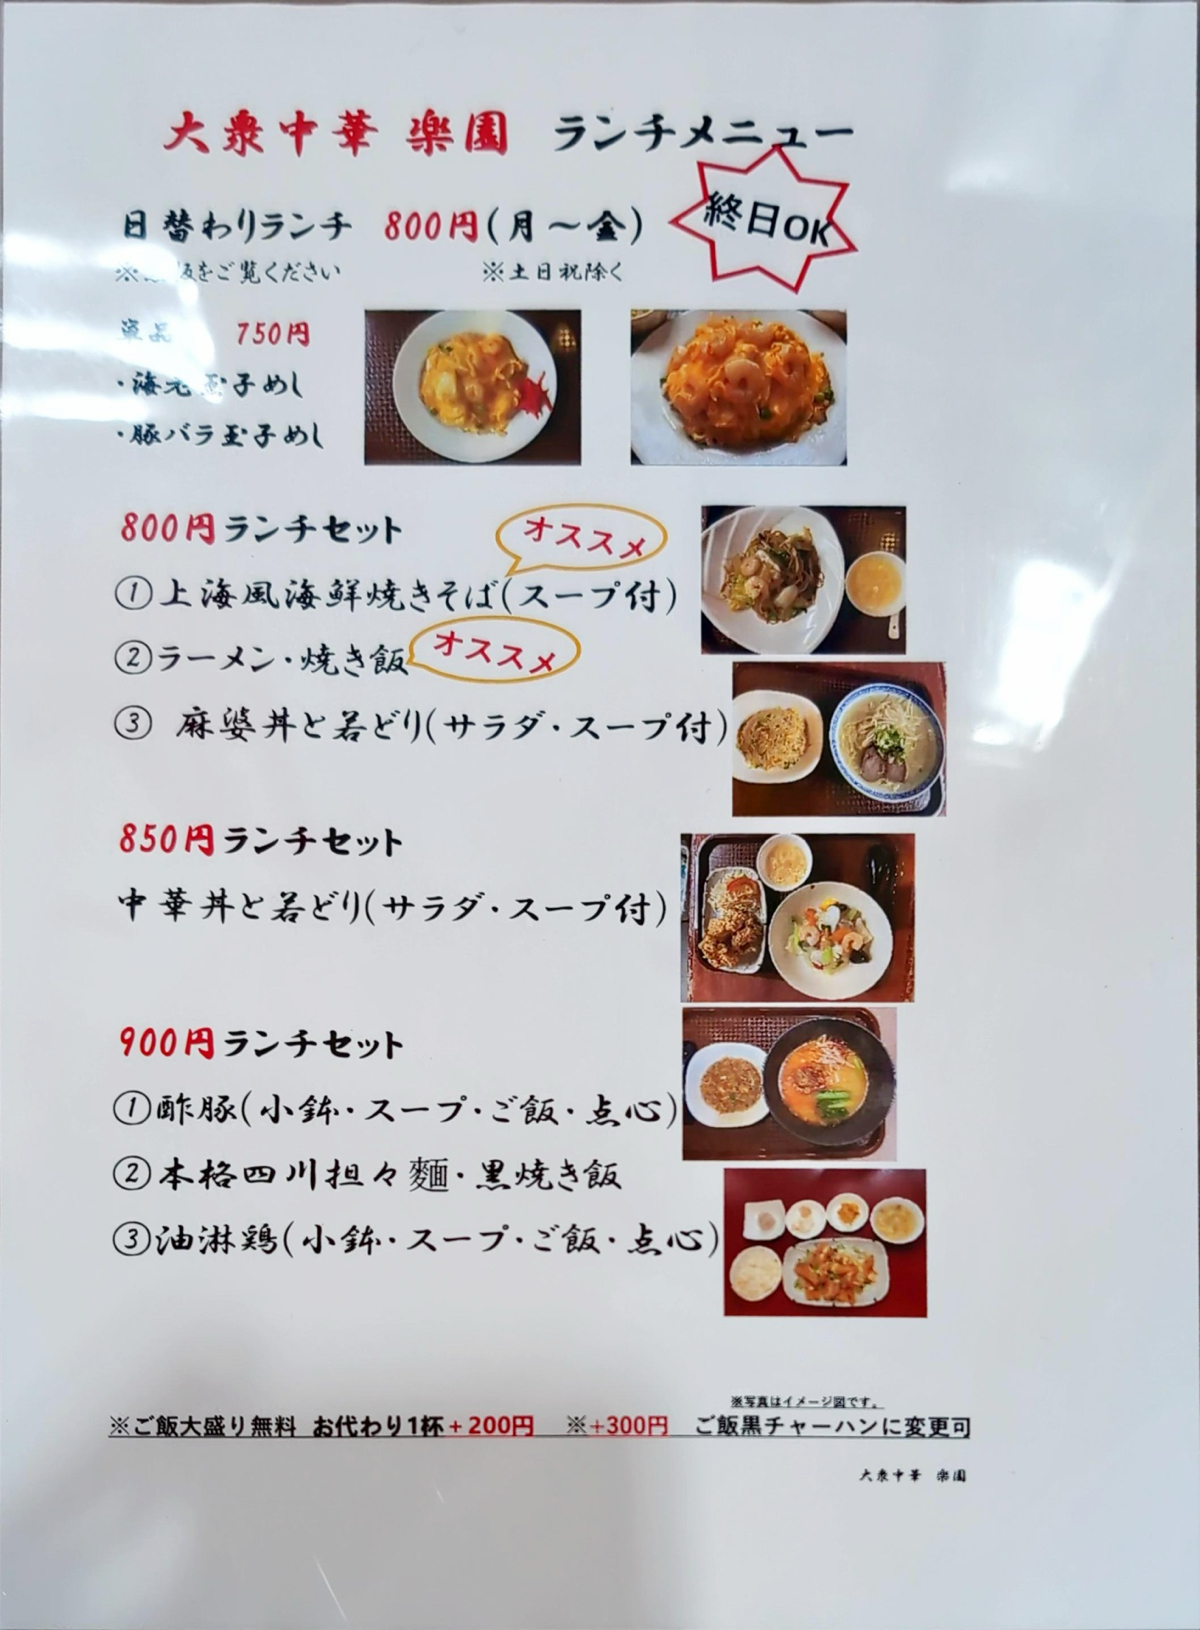 大衆中華 楽園 ランチメニュー
終日OK
日替わりランチ 800円(月～金)
をご覧ください ※土日祝除く
単品 750円
・海老玉子めし
・豚バラ玉子めし
800円ランチセット
オススメ
①上海風海鮮焼きそば(スープ付)
②ラーメン・焼き飯
オススメ
③ 麻婆丼と若どり(サラダ・スープ付)
850円ランチセット
中華丼と若どり(サラダ・スープ付)
900円ランチセット
①酢豚(小鉢・スープ・ご飯・点心)
②本格四川担々麵・黒焼き飯
③油淋鶏(小鉢・スープ・ご飯・点心)
※写真はイメージ図です。
※ご飯大盛り無料 お代わり1杯+200円 ※+300円 ご飯黒チャーハンに変更可
大衆中華 楽園